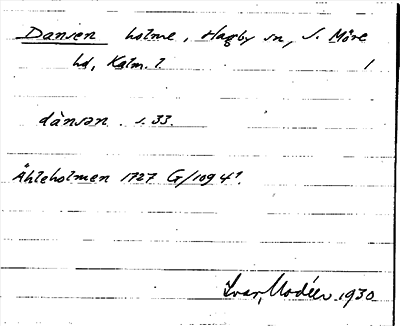 Dansen holme, Hagby sn, S. Möre
hd, Kalm. l 1
dánsən s. 33.
Åhleholmen 1727 G/109 4¹.
Ivar Modéer 1930